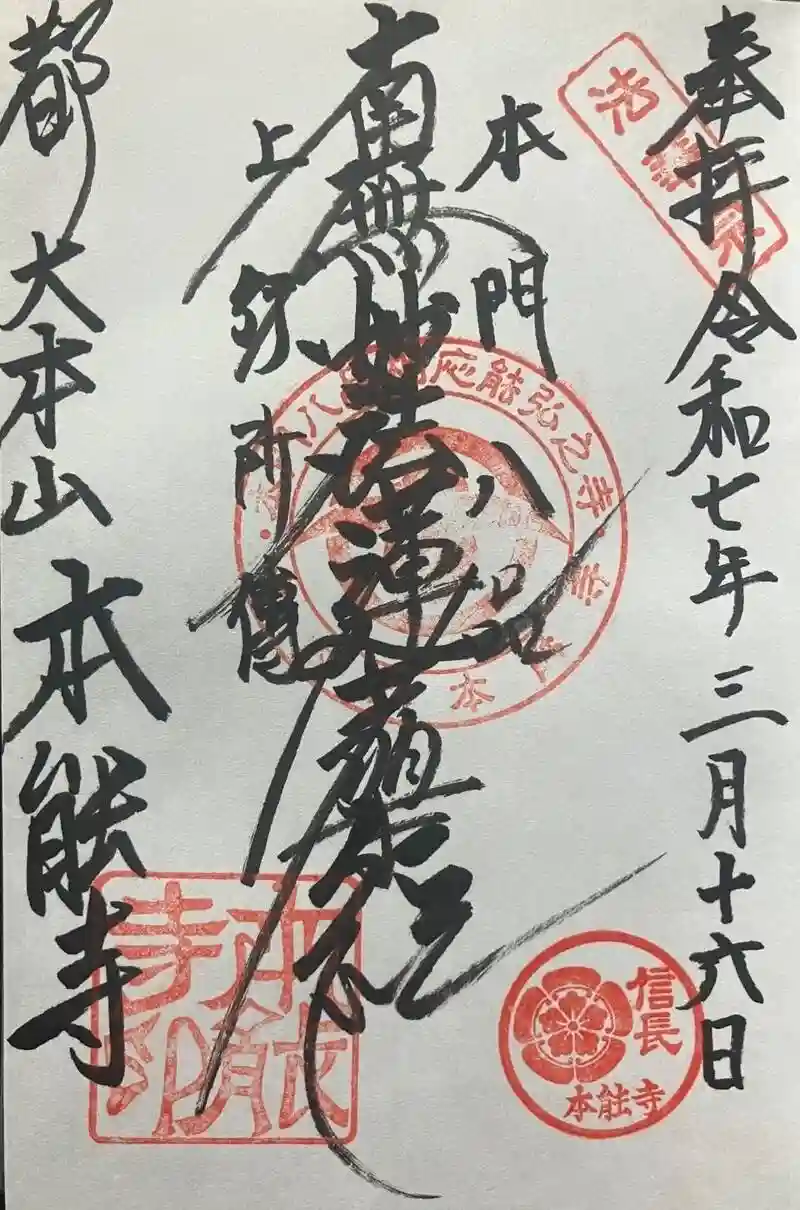 奉拝 令和七年 三月十六日
本門八品
南無妙法蓮華経
上行所傳
都 大本山 本能寺
信長
本能寺
本能寺印